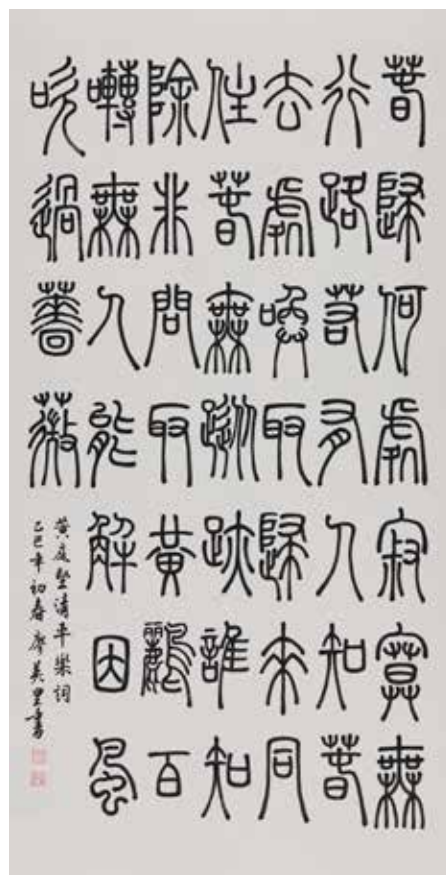 春歸何處寂寞無
行路若有人知春
去處喚取歸來同
住春無蹤跡誰知
除非問取黃鸝百
囀無人能解因風
吹過薔薇
黃庭堅清平樂詞
乙巳年初春廖美里書